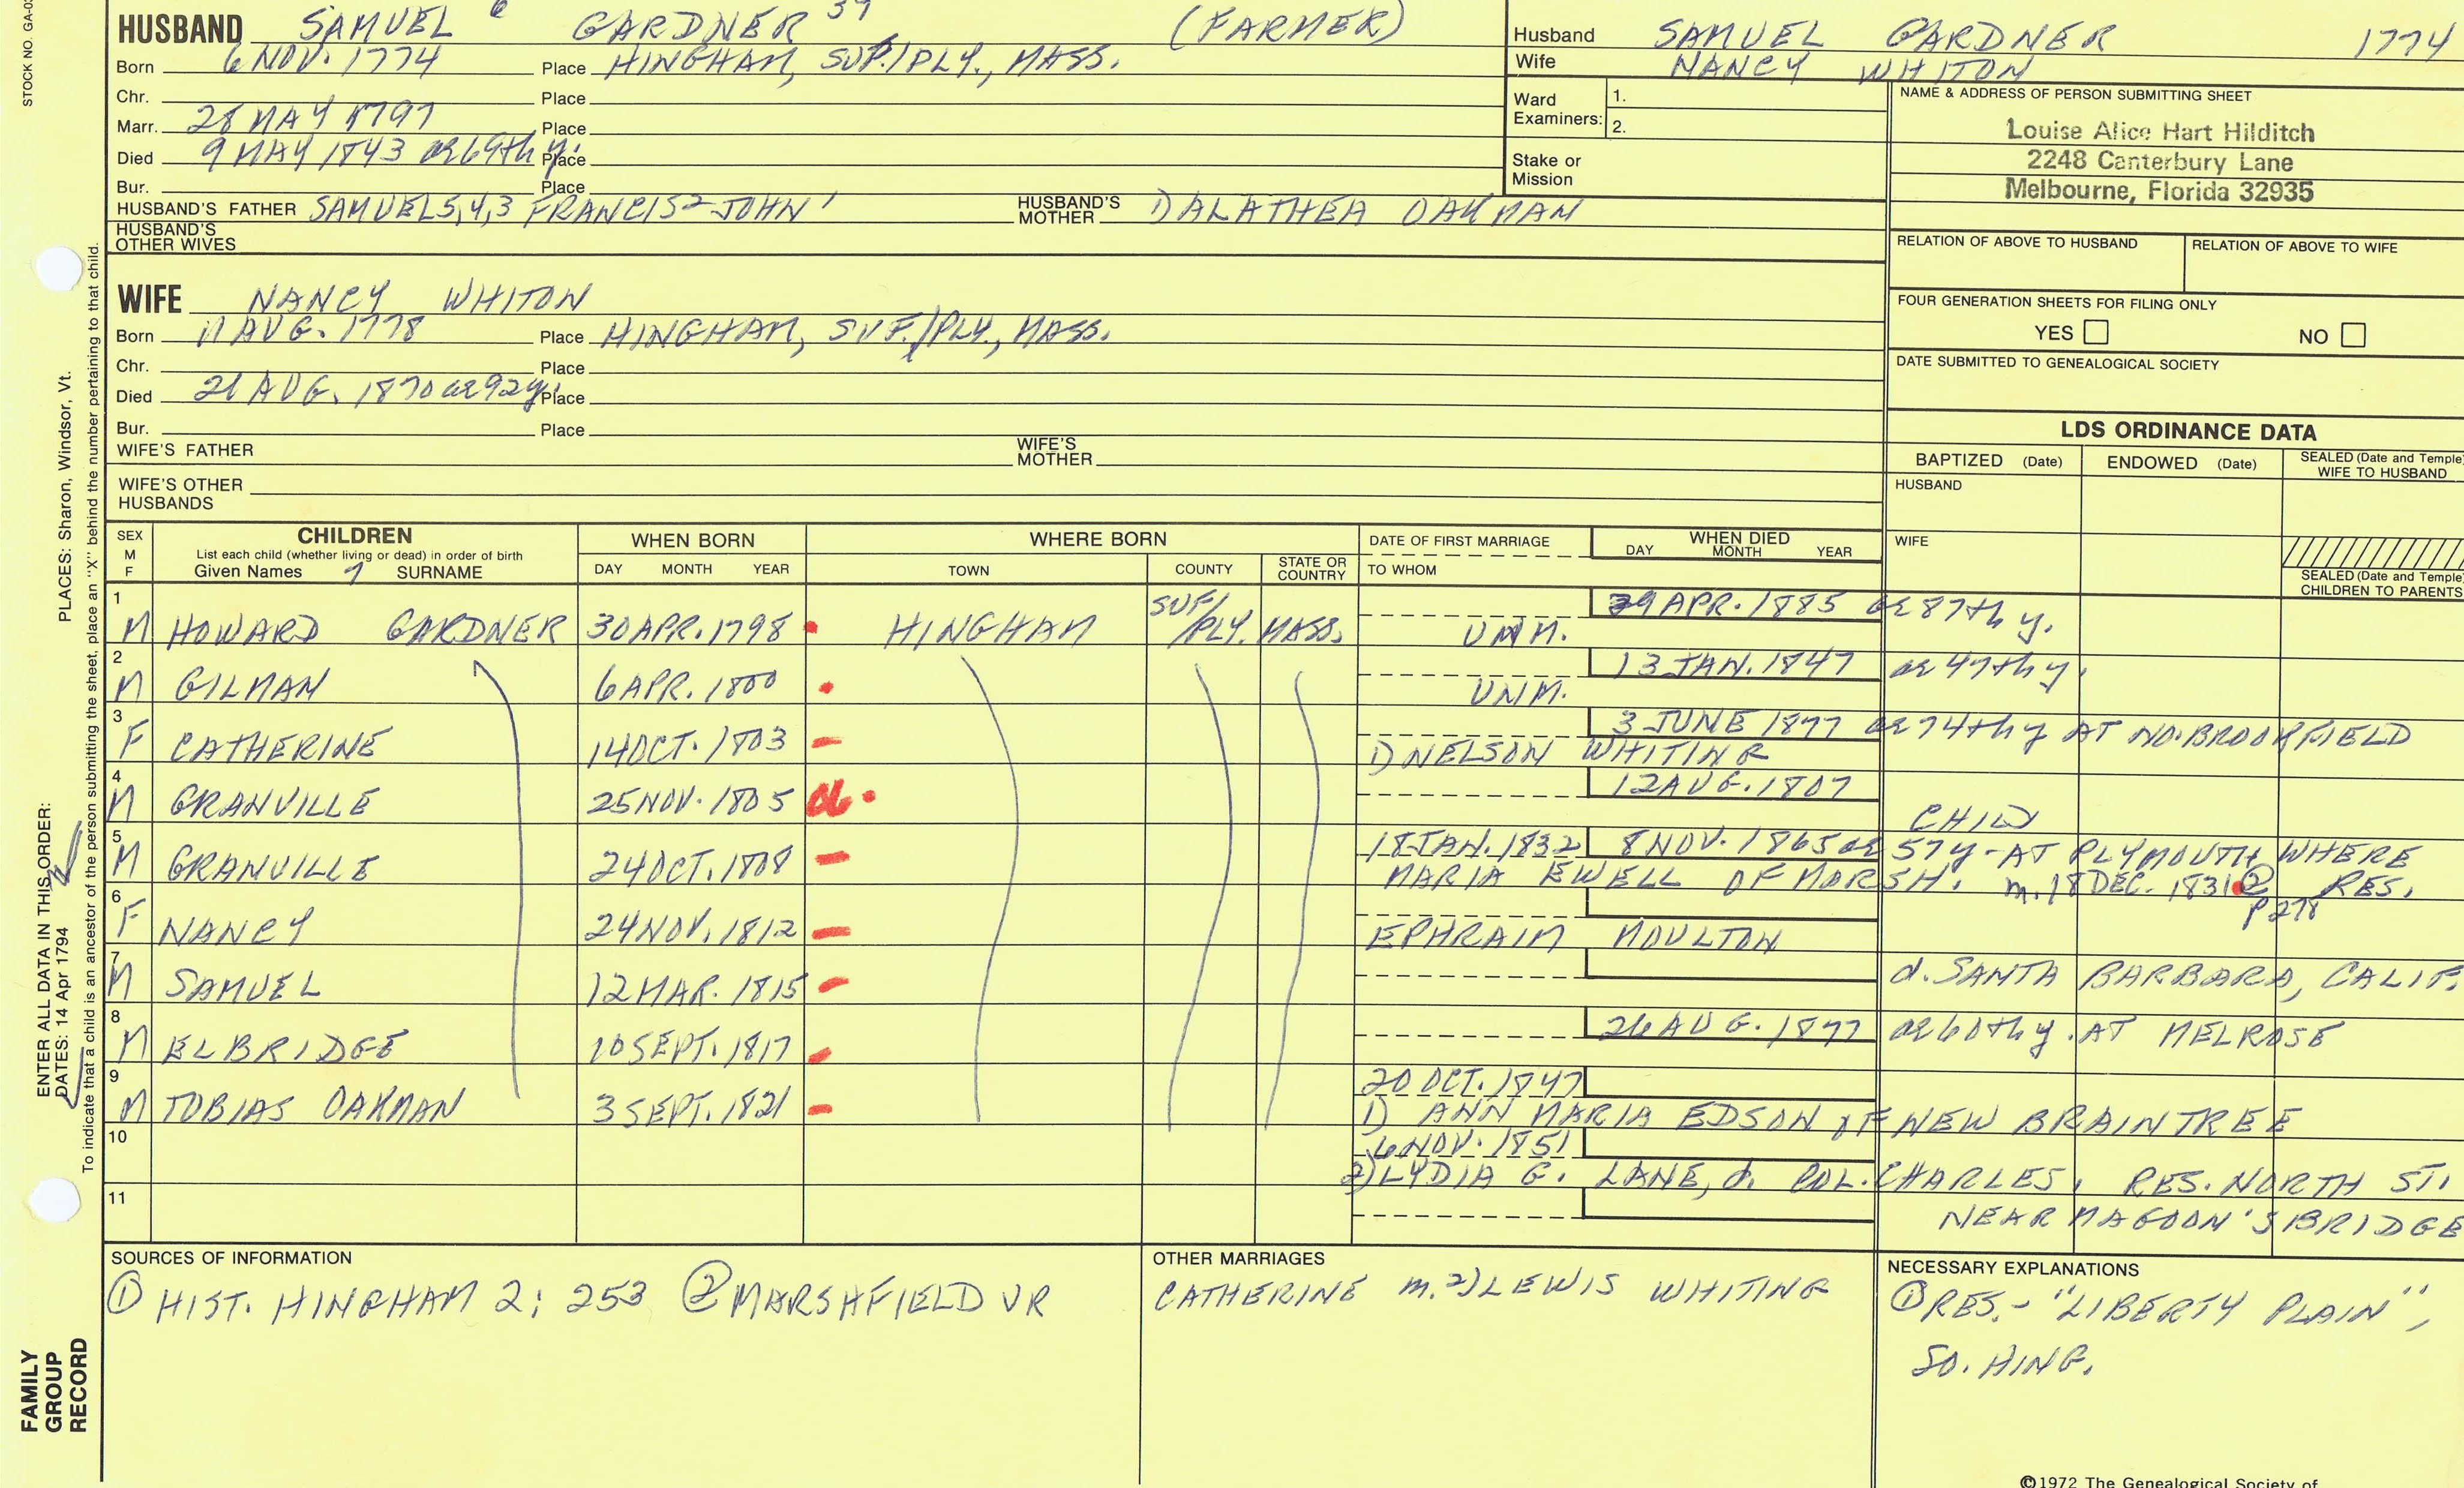 STOCK NO. GA-0
HUSBAND SAMUEL 6 GARDNER 39 (FARMER)
Born 6 NOV. 1774 Place HINGHAM, SUF./PLY., MASS.
Chr. Place
Marr. 28 MAY 1797 Place
Died 9 MAY 1843 ae 69th y. Place
Bur. Place
HUSBAND'S FATHER SAMUEL 5,4,3 FRANCIS 2 JOHN 1 HUSBAND'S MOTHER DALATHEA OAKMAN
HUSBAND'S OTHER WIVES
Husband SAMUEL GARDNER 1774
Wife NANCY WHITON
Ward Examiners: 1.
2.
Stake or Mission
NAME & ADDRESS OF PERSON SUBMITTING SHEET
Louise Alice Hart Hilditch
2248 Canterbury Lane
Melbourne, Florida 32935
RELATION OF ABOVE TO HUSBAND RELATION OF ABOVE TO WIFE
FOUR GENERATION SHEETS FOR FILING ONLY
YES NO
DATE SUBMITTED TO GENEALOGICAL SOCIETY
WIFE NANCY WHITON
Born 11 AUG. 1778 Place HINGHAM, SUF./PLY., MASS.
Chr. Place
Died 21 AUG. 1870 ae 92y. Place
Bur. Place
WIFE'S FATHER WIFE'S MOTHER
WIFE'S OTHER HUSBANDS
LDS ORDINANCE DATA
BAPTIZED (Date) ENDOWED (Date) SEALED (Date and Temple) WIFE TO HUSBAND
HUSBAND
WIFE
SEALED (Date and Temple) CHILDREN TO PARENTS
SEX M F CHILDREN WHEN BORN WHERE BORN DATE OF FIRST MARRIAGE WHEN DIED
List each child (whether living or dead) in order of birth
Given Names 7 SURNAME DAY MONTH YEAR TOWN COUNTY STATE OR COUNTRY TO WHOM DAY MONTH YEAR
1 M HOWARD GARDNER 30 APR. 1798 HINGHAM SUF/PLY. MASS. UNM. 29 APR. 1885 ae 87th y.
2 M GILMAN 6 APR. 1800 UNM. 13 JAN. 1847 ae 47th y.
3 F CATHERINE 14 OCT. 1803 1) NELSON WHITING 3 JUNE 1877 ae 74th y AT NO. BROOKFIELD
4 M GRANVILLE 25 NOV. 1805 12 AUG. 1807 CHILD
5 M GRANVILLE 24 OCT. 1808 18 JAN. 1832 8 NOV. 1865 ae 57y - AT PLYMOUTH, WHERE RES.
MARIA EWELL OF MARSH. m. 18 DEC. 1831 ② P 278
6 F NANCY 24 NOV. 1812 EPHRAIM MOULTON
7 M SAMUEL 12 MAR. 1815 d. SANTA BARBARA, CALIF.
8 M ELBRIDGE 10 SEPT. 1817 26 AUG. 1877 ae 60th y. AT MELROSE
9 M TOBIAS OAKMAN 3 SEPT. 1821 20 OCT. 1847
1) ANN MARIA EDSON OF NEW BRAINTREE
10 6 NOV. 1851
2) LYDIA G. LANE, d. COL. CHARLES, RES. NORTH ST.
11 NEAR MAGOON'S BRIDGE
SOURCES OF INFORMATION
① HIST. HINGHAM 2: 253 ② MARSHFIELD VR
OTHER MARRIAGES
CATHERINE m. 2) LEWIS WHITING
NECESSARY EXPLANATIONS
① RES. - "LIBERTY PLAIN",
SO. HING.
©1972 The Genealogical Society of
ENTER ALL DATA IN THIS ORDER:
DATES: 14 Apr 1794 PLACES: Sharon, Windsor, Vt.
To indicate that a child is an ancestor of the person submitting the sheet, place an "X" behind the number pertaining to that child.
FAMILY
GROUP
RECORD